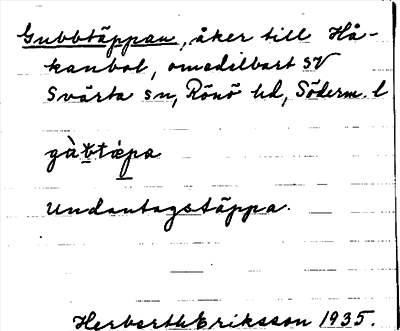 Gubbtäppan, åker till Hå-
kanbol, omedelbart SV
Svärta sn, Rönö hd, Söderm. l
gàbtæpa
Undantagstäppa.
Herbert Eriksson 1935.